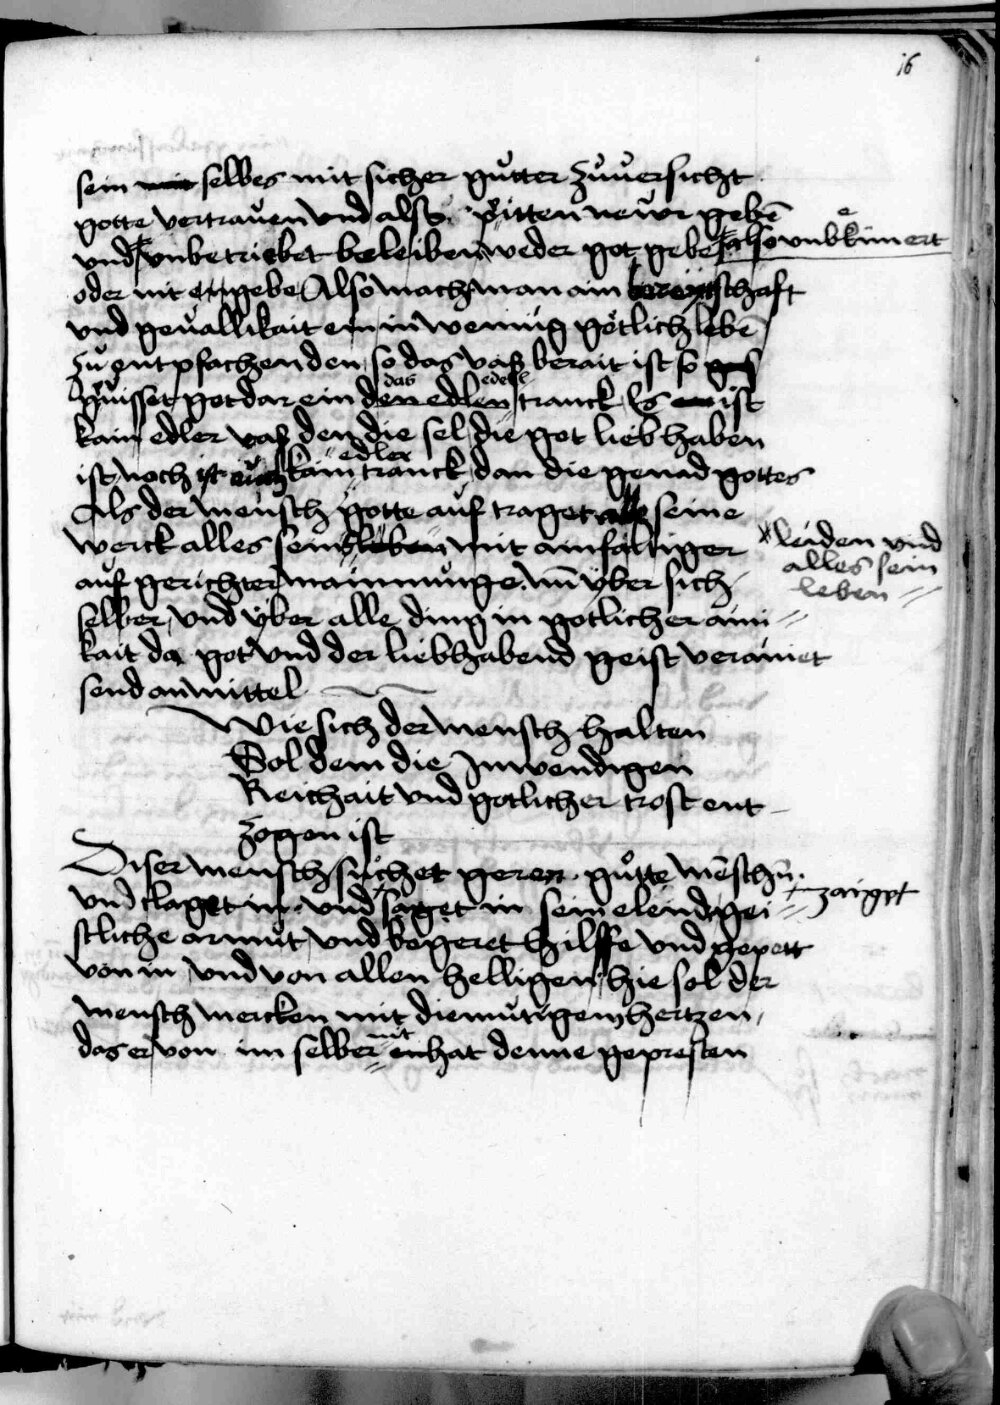 16
sein selbes mit sicher gůtter zůuersicht
gotte vertrauen vnd also sitten newr gebē
vnd vnbetriebet beleiben weder got gebe also vnbkūmert
oder nit engebe Also mach man ain bereytschaft
vnd geuallikait ein inwennig götlich lebē
zů entpfachen den so das vaß berait ist so
gůisset got dar ein den edlen das edell tranck Es ist
kain edler vaß den die sel die got liebhaben
ist noch ist auch kain edler tranck dan die genad gottes
Als der mensch gotte auf traget seine
werck alles sein leben mit ainfaltiger
leiden vnd
alles sein
leben
auf gerichter mainnunge vnd yber sich
selber vnd yber alle ding in gotlicher aini
kait da got vnd der liebhabend geist verainet
send an mittel
Wie sich der mensch halten
Sol dem die Inwendigen
Reichait vnd gotlicher trost ent
zogen ist
Diser mensch sůchet geren gůtte menschn
vnd claget in vnd saget in sein elend gei
zaigt
stliche armůt vnd begeret hilffe vnd gepett
von in vnd von allen helligen hie sol der
mensch mercken mit diemůtigem hertzen
das er von im selber nit enhat denne gepresten